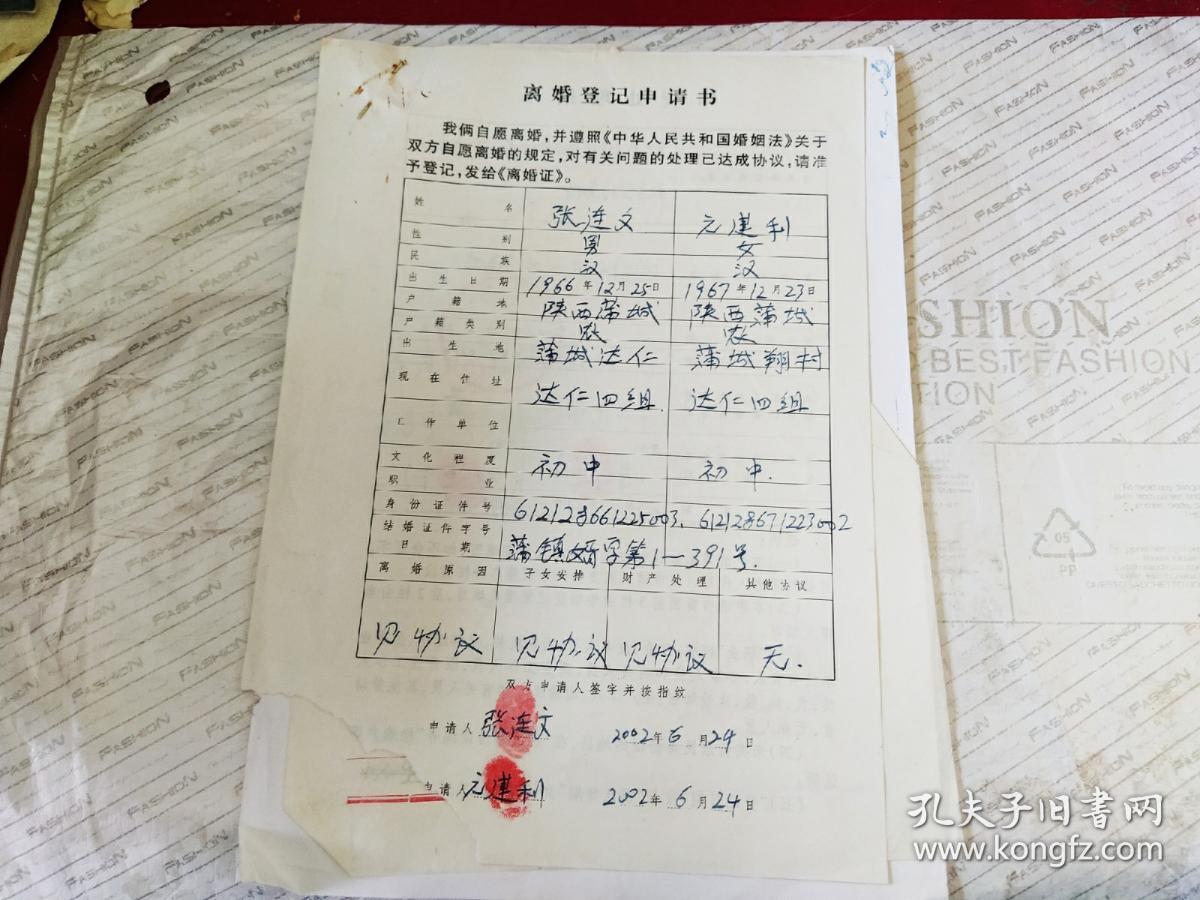 离婚登记申请书
我俩自愿离婚，并遵照《中华人民共和国婚姻法》关于
双方自愿离婚的规定，对有关问题的处理已达成协议，请准
予登记，发给《离婚证》。
姓名 张连文 元建利
性别 男 女
民族 汉 汉
出生日期 1966年12月25日 1967年12月23日
户籍地 陕西蒲城 陕西蒲城
户籍类别 农 农
出生地 蒲城达仁 蒲城翔村
现在住址 达仁四组 达仁四组
工作单位
文化程度 初中 初中.
职业
身份证件号 612128661225003. 612128671223002
结婚证件字号 日期 蒲镇婚字第1—391号.
离婚原因 子女安排 财产处理 其他协议
见协议 见协议 见协议 无.
双方申请人签字并按指纹
申请人 张连文 2002年6月24日
申请人 元建利 2002年6月24日
FASHION
BEST FASHION
05
PP
孔夫子旧书网
www.kongfz.com